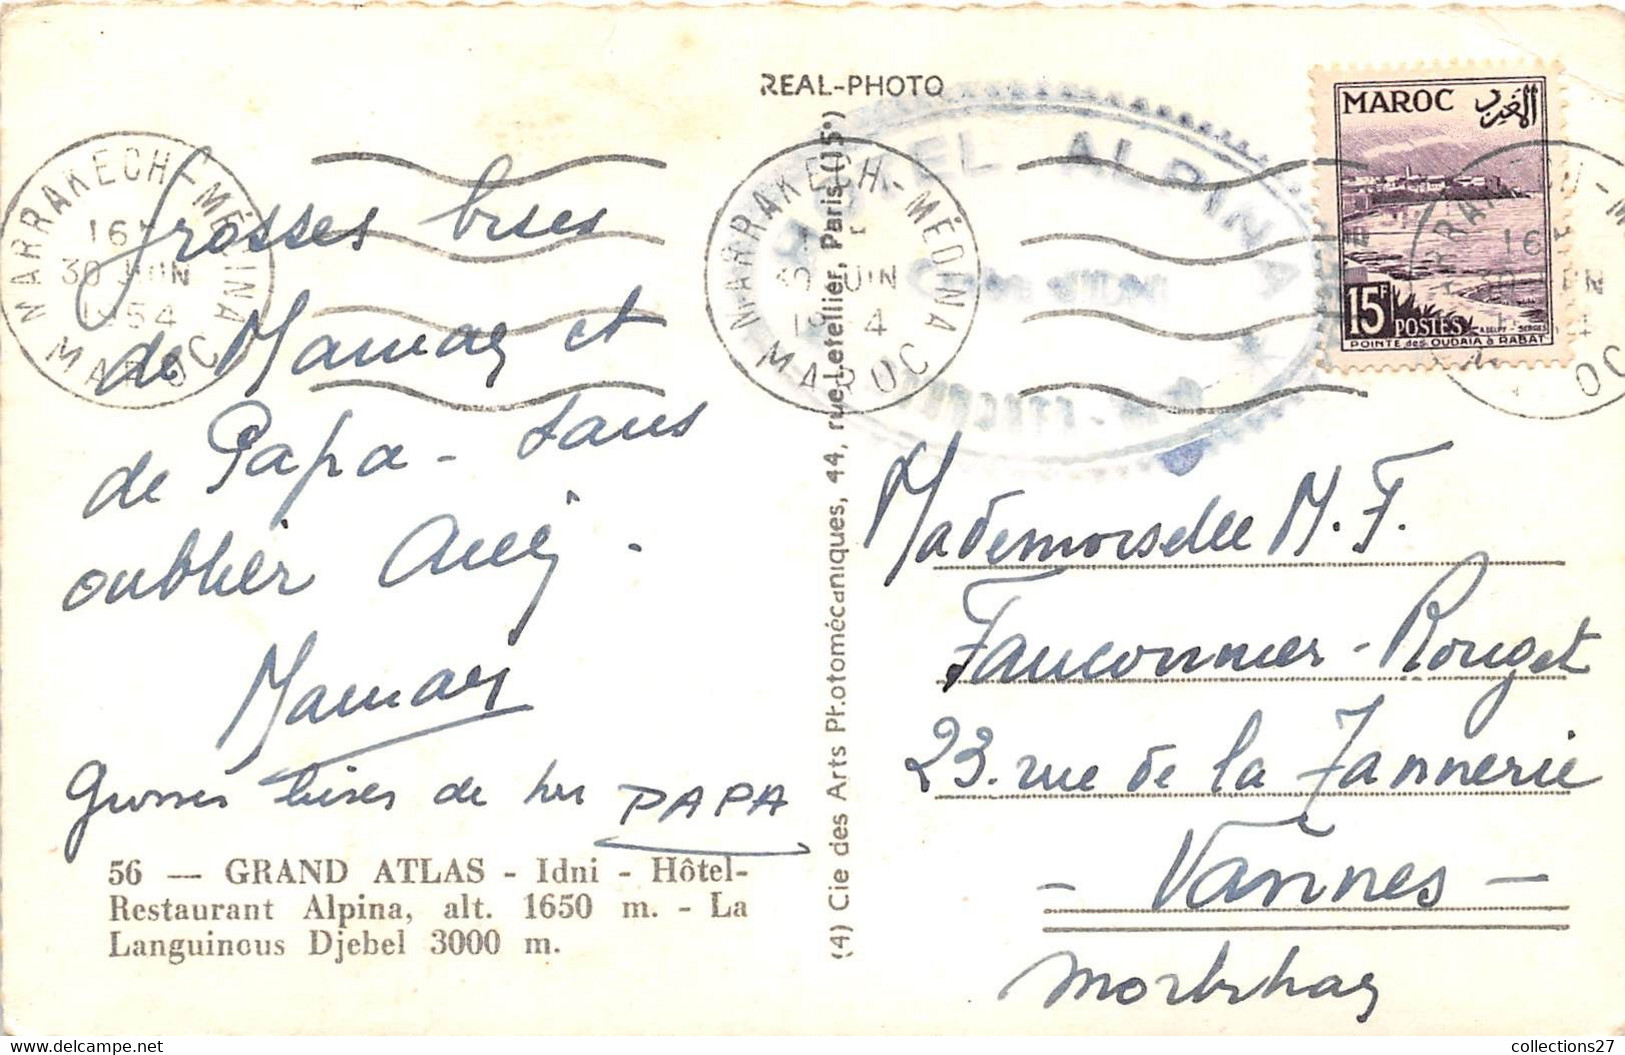 REAL-PHOTO
MAROC المغرب
15F POSTES
POINTE des OUDAIA à RABAT
MARRAKECH-MÉDINA
16H
30 JUIN
1954
MAROC
MARRAKECH-MÉDINA
30 JUIN
MAROC
HOTEL ALPINA
Grosses bises
de Maman et
de Papa - sans
oublier
Maman
Grosses bises de ton PAPA
56 — GRAND ATLAS - Idni - Hôtel-
Restaurant Alpina, alt. 1650 m. - La
Languinous Djebel 3000 m.
(4) Cie des Arts Photomécaniques, 44, rue Letellier, Paris (15e)
Mademoiselle M. F.
Fauconnier-Rouget
23. rue de la Tannerie
- Vannes -
Morbihan
collections27
www.delcampe.net